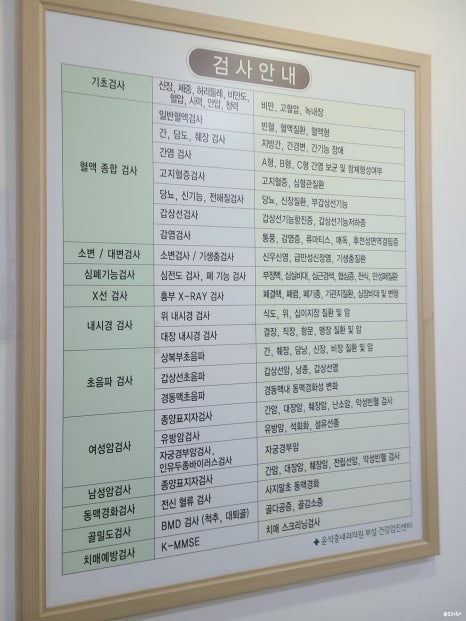 검사안내
기초검사 신장, 체중, 허리둘레, 비만도, 비만, 고혈압, 녹내장
혈압, 시력, 안압, 청력
혈액 종합 검사 일반혈액검사 빈혈, 혈액질환, 혈액형
간, 담도, 췌장 검사 지방간, 간경변, 간기능 장애
간염 검사 A형, B형, C형 간염 보균 및 항체형성여부
고지혈증검사 고지혈증, 심혈관질환
당뇨, 신기능, 전해질검사 당뇨, 신장질환, 부갑상선기능
갑상선검사 갑상선기능항진증, 갑상선기능저하증
감염검사 통풍, 감염증, 류마티스, 매독, 후천성면역결핍증
소변 / 대변검사 소변검사 / 기생충검사 신우신염, 급만성신장염, 기생충질환
심폐기능검사 심전도 검사, 폐 기능 검사 부정맥, 심실비대, 심근경색, 협심증, 천식, 만성폐질환
X선 검사 흉부 X-RAY 검사 폐결핵, 폐렴, 폐기종, 기관지질환, 심장비대 및 변형
내시경 검사 위 내시경 검사 식도, 위, 십이지장 질환 및 암
대장 내시경 검사 결장, 직장, 항문, 맹장 질환 및 암
초음파 검사 상복부초음파 간, 췌장, 담낭, 신장, 비장 질환 및 암
갑상선초음파 갑상선암, 낭종, 갑상선염
경동맥초음파 경동맥내 동맥경화성 변화
여성암검사 종양표지자검사 간암, 대장암, 췌장암, 난소암, 악성빈혈 검사
유방암검사 유방암, 석회화, 섬유선종
자궁경부암검사, 자궁경부암
인유두종바이러스검사
남성암검사 종양표지자검사 간암, 대장암, 췌장암, 전립선암, 악성빈혈 검사
동맥경화검사 전신 혈류 검사 사지말초 동맥경화
골밀도검사 BMD 검사 (척추, 대퇴골) 골다공증, 골감소증
치매예방검사 K-MMSE 치매 스크리닝검사
윤석중내과의원 부설 건강검진센터